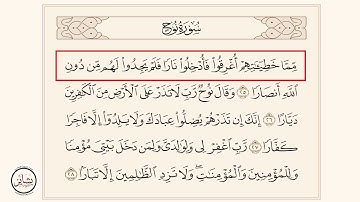 سُورَةُ نُوحٍ
مِّمَّا خَطِيٓـَٔـٰتِهِمْ أُغْرِقُوا۟ فَأُدْخِلُوا۟ نَارًا فَلَمْ يَجِدُوا۟ لَهُم مِّن دُونِ
ٱللَّهِ أَنصَارًا ٢٥ وَقَالَ نُوحٌ رَّبِّ لَا تَذَرْ عَلَى ٱلْأَرْضِ مِنَ ٱلْكَـٰفِرِينَ
دَيَّارًا ٢٦ إِنَّكَ إِن تَذَرْهُمْ يُضِلُّوا۟ عِبَادَكَ وَلَا يَلِدُوٓا۟ إِلَّا فَاجِرًا
كَفَّارًا ٢٧ رَّبِّ ٱغْفِرْ لِى وَلِوَٰلِدَىَّ وَلِمَن دَخَلَ بَيْتِىَ مُؤْمِنًا
وَلِلْمُؤْمِنِينَ وَٱلْمُؤْمِنَـٰتِ وَلَا تَزِدِ ٱلظَّـٰلِمِينَ إِلَّا تَبَارًۢا ٢٨